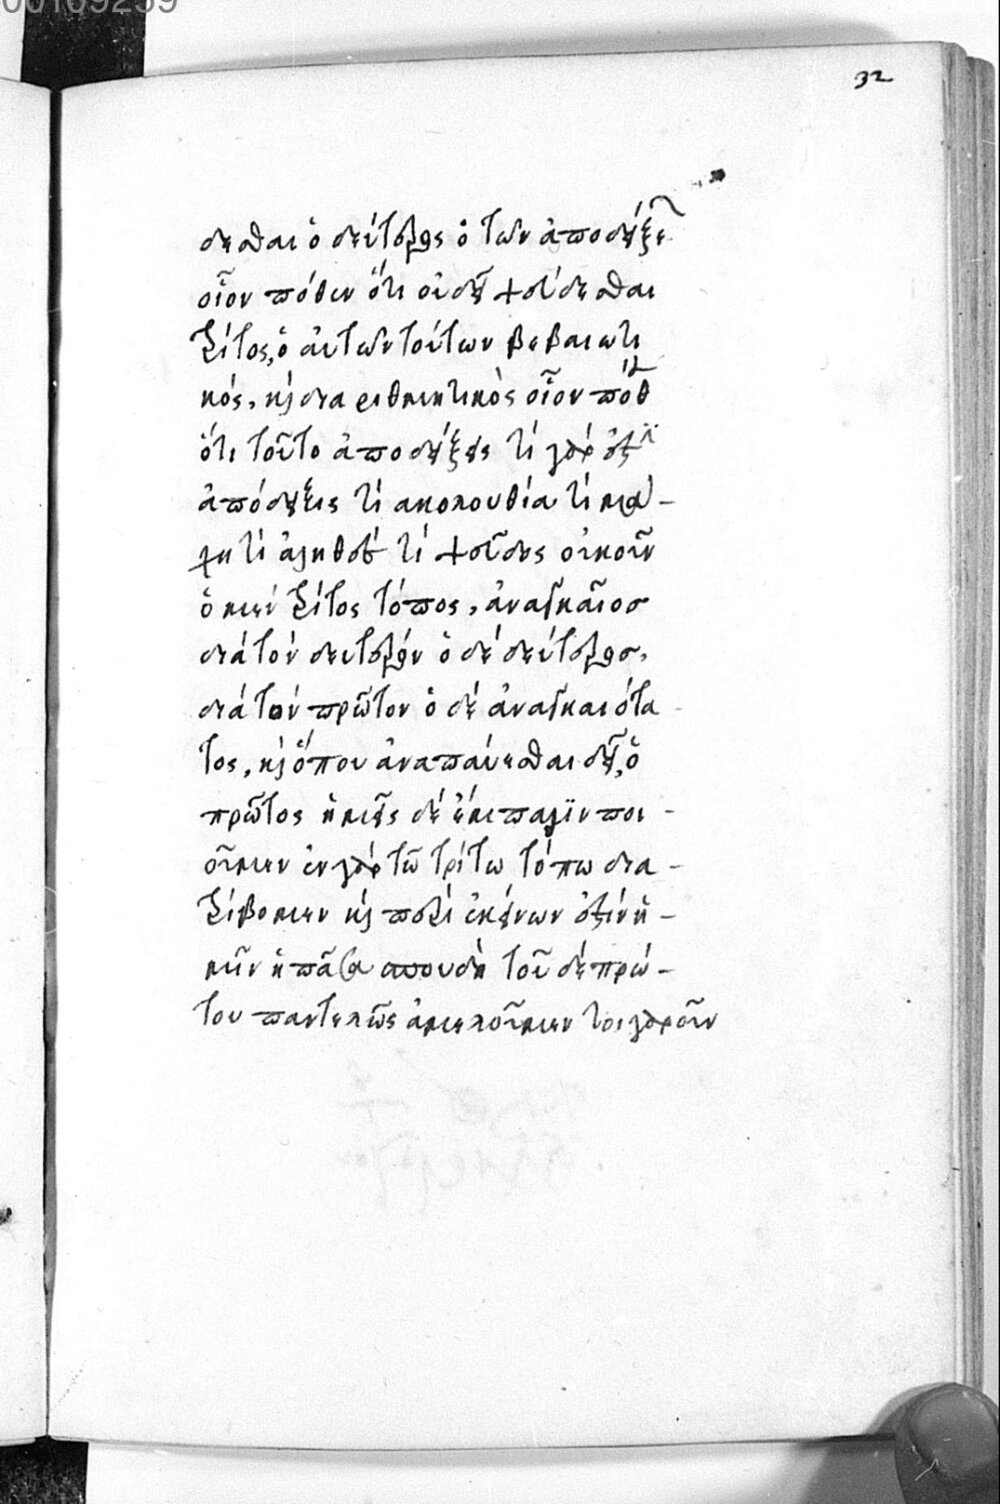 32
δεσθαι ὁ δεύτερος ὁ τῶν ἀποδείξεων
οἷον πόθεν ὅτι οὐ δεῖ ψεύδεσθαι
τρίτος, ὁ αὐτῶν τούτων βεβαιωτι
κός, καὶ διαρθρωτικὸς οἷον πόθεν
ὅτι τοῦτο ἀπόδειξις τί γάρ ἐστιν
ἀπόδειξις τί ακολουθία τί μά-
χη τί ἀληθὲς τί ψεῦδος οὐκοῦν
ὁ μὲν τρίτος τόπος, ἀναγκαῖος
διὰ τὸν δεύτερον ὁ δὲ δεύτερος,
διὰ τὸν πρῶτον ὁ δὲ ἀναγκαιότα
τος, καὶ ὅπου ἀναπαύεσθαι δεῖ, ὁ
πρῶτος ἡμεῖς δὲ ἔμπαλιν ποι-
οῦμεν ἐν γὰρ τῶ τρίτω τόπω δια-
τρίβομεν καὶ περὶ ἐκεῖνων ἐστὶν ἡ-
μῖν ἡ πᾶσα σπουδὴ τοῦ δὲ πρώ-
του παντελῶς ἀμελοῦμεν τοιγαροῦν